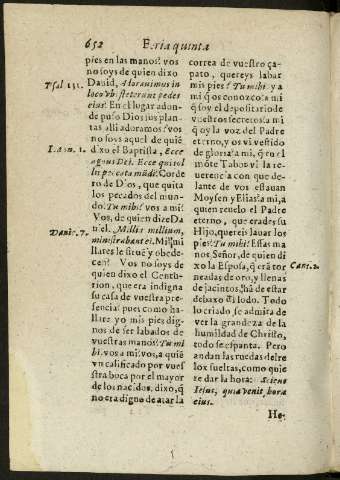 652 Feria quinta
pies en las manos? vos
no soys de quien dixo
Dauid, Adorauimus in
loco vbi steterunt pedes
eius? En el lugar adon-
de puso Dios sus plan-
tas alli adoramos? vos
no soys aquel de quiē
dixo el Baptista, Ecce
agnus Dei. Ecce qui tol
lit peccata mūdi? Corde
ro de Dios, que quita
los pecados del mun-
do? Tu mihi? vos a mi?
Vos, de quien dize Da
niel. Millia millium,
ministrabant ei. Mil mi
llares le siruē y obede-
cen? Vos no soys de
quien dixo el Centu-
rion, que era indigna
su casa de vuestra pre-
sencia? pues como ha-
llare yo mis pies dig-
nos de ser labados de
vuestras manos? Tu mi
hi. vos a mi? vos, a quiē
vn calificado por vues
tra boca por el mayor
de los nacidos, dixo, q̃
no era digno de atar la
Psal 131.
Ioan. 1.
Danie. 7.
correa de vuestro ça-
pato, quereys labar
mis pies? Tu mihi? y a
mi q̃ os conozco? a mi
q̃ soy el depositario de
vuestros secretos? a mi
q̃ oy la voz del Padre
eterno, y os vi vestido
de gloria? a mi, q̃ en el
mōte Tabor vi la re-
uerencia con que de-
lante de vos estauan
Moysen y Elias? a mi, a
quien reuelo el Padre
eterno, que erades su
Hijo, quereis lauar los
pies? Tu mihi? Estas ma
nos Señor, de quien di
xo la Esposa, q̃ erā tor
neadas de oro, y llenas
de jacintos, hā de estar
debaxo d̃l lodo. Todo
lo criado se admita de
ver la grandeza de la
humildad de Christo,
todo se espanta. Pero
andan las ruedas del re
lox sueltas, como quie
re dar la hora: Sciens
Iesus, quia venit hora
eius.
Cant. 2.
He-